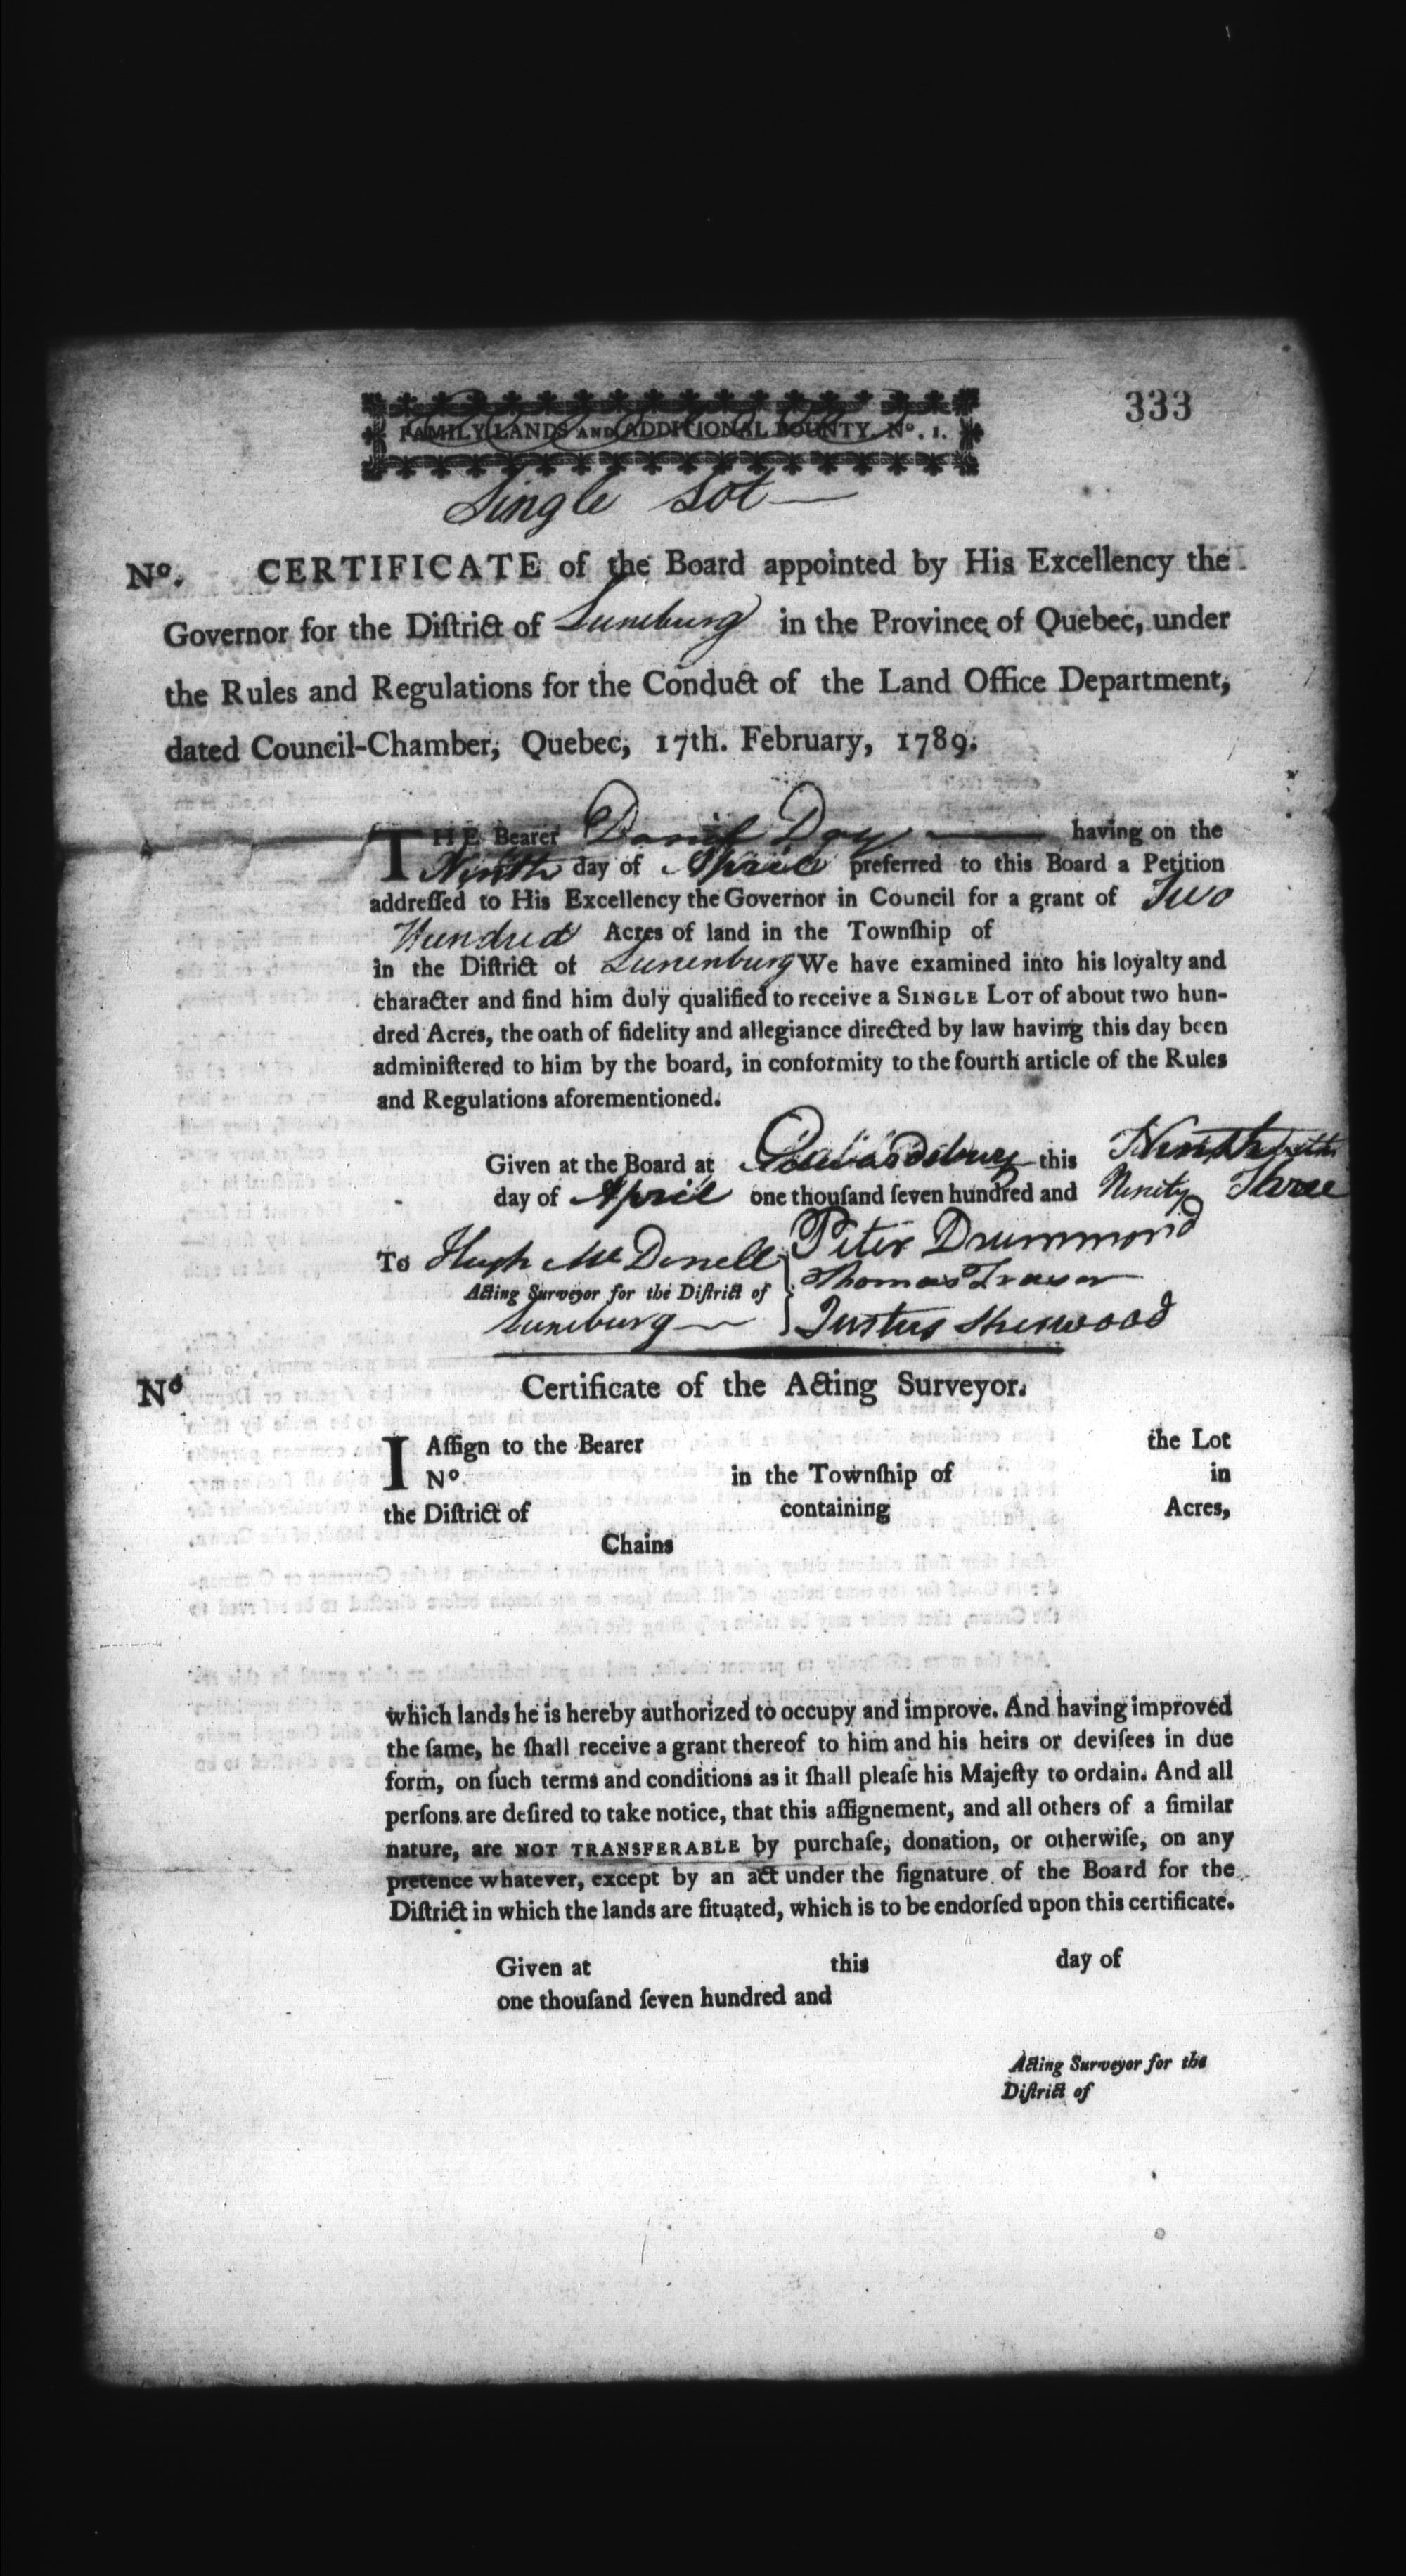 333
FAMILY LANDS AND ADDITIONAL BOUNTY. Nº. 1.
Single Lot
Nº. CERTIFICATE of the Board appointed by His Excellency the
Governor for the Diſtrict of Luneburg in the Province of Quebec, under
the Rules and Regulations for the Conduct of the Land Office Department,
dated Council-Chamber, Quebec, 17th. February, 1789.
THE Bearer Daniel Day having on the
Ninth day of April preferred to this Board a Petition
addreſſed to His Excellency the Governor in Council for a grant of Two
Hundred Acres of land in the Townſhip of
in the Diſtrict of Lunenburg We have examined into his loyalty and
character and find him duly qualified to receive a SINGLE LOT of about two hun-
dred Acres, the oath of fidelity and allegiance directed by law having this day been
adminiſtered to him by the board, in conformity to the fourth article of the Rules
and Regulations aforementioned.
Given at the Board at this
day of April one thouſand ſeven hundred and Ninity Three
To Hugh McDonell Peter Drummond
Thomas Fraser
Acting Surveyor for the Diſtrict of
Luneburg Justus Sherwood
Nº Certificate of the Acting Surveyor.
I Aſſign to the Bearer the Lot
Nº. in the Townſhip of in
the Diſtrict of containing Acres,
Chains
which lands he is hereby authorized to occupy and improve. And having improved
the ſame, he ſhall receive a grant thereof to him and his heirs or deviſees in due
form, on ſuch terms and conditions as it ſhall pleaſe his Majeſty to ordain. And all
perſons are deſired to take notice, that this aſſignement, and all others of a ſimilar
nature, are NOT TRANSFERABLE by purchaſe, donation, or otherwiſe, on any
pretence whatever, except by an act under the ſignature of the Board for the
Diſtrict in which the lands are ſituated, which is to be endorſed upon this certificate.
Given at this day of
one thouſand ſeven hundred and
Acting Surveyor for the
Diſtrict of